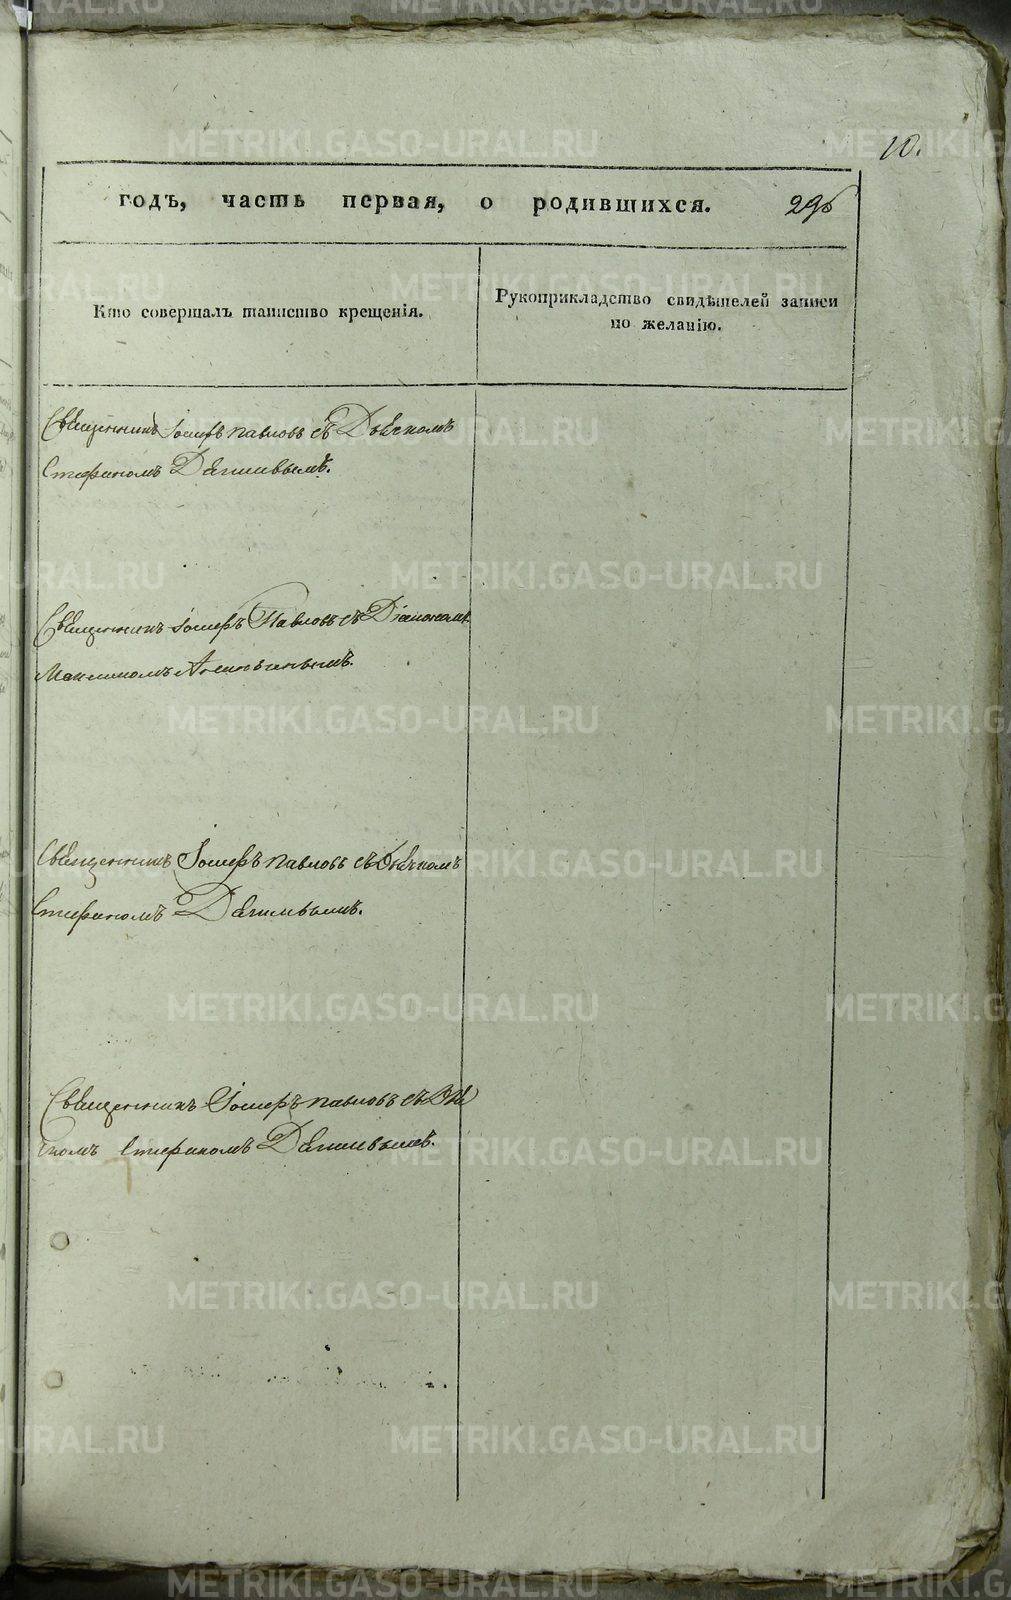 10.
годъ, часть первая, о родившихся. 296
Кто совершалъ таинство крещенія.
Рукоприкладство свидѣтелей записи
по желанію.
Священникъ Іосифъ Павловъ съ Дьячкомъ
Стефаномъ
Священникъ Іосифъ Павловъ съ Діакономъ
Священникъ Іосифъ Павловъ съ Дьячкомъ
Стефаномъ
Священникъ Іосифъ Павловъ съ Дья
чкомъ Стефаномъ
METRIKI.GASO-URAL.RU